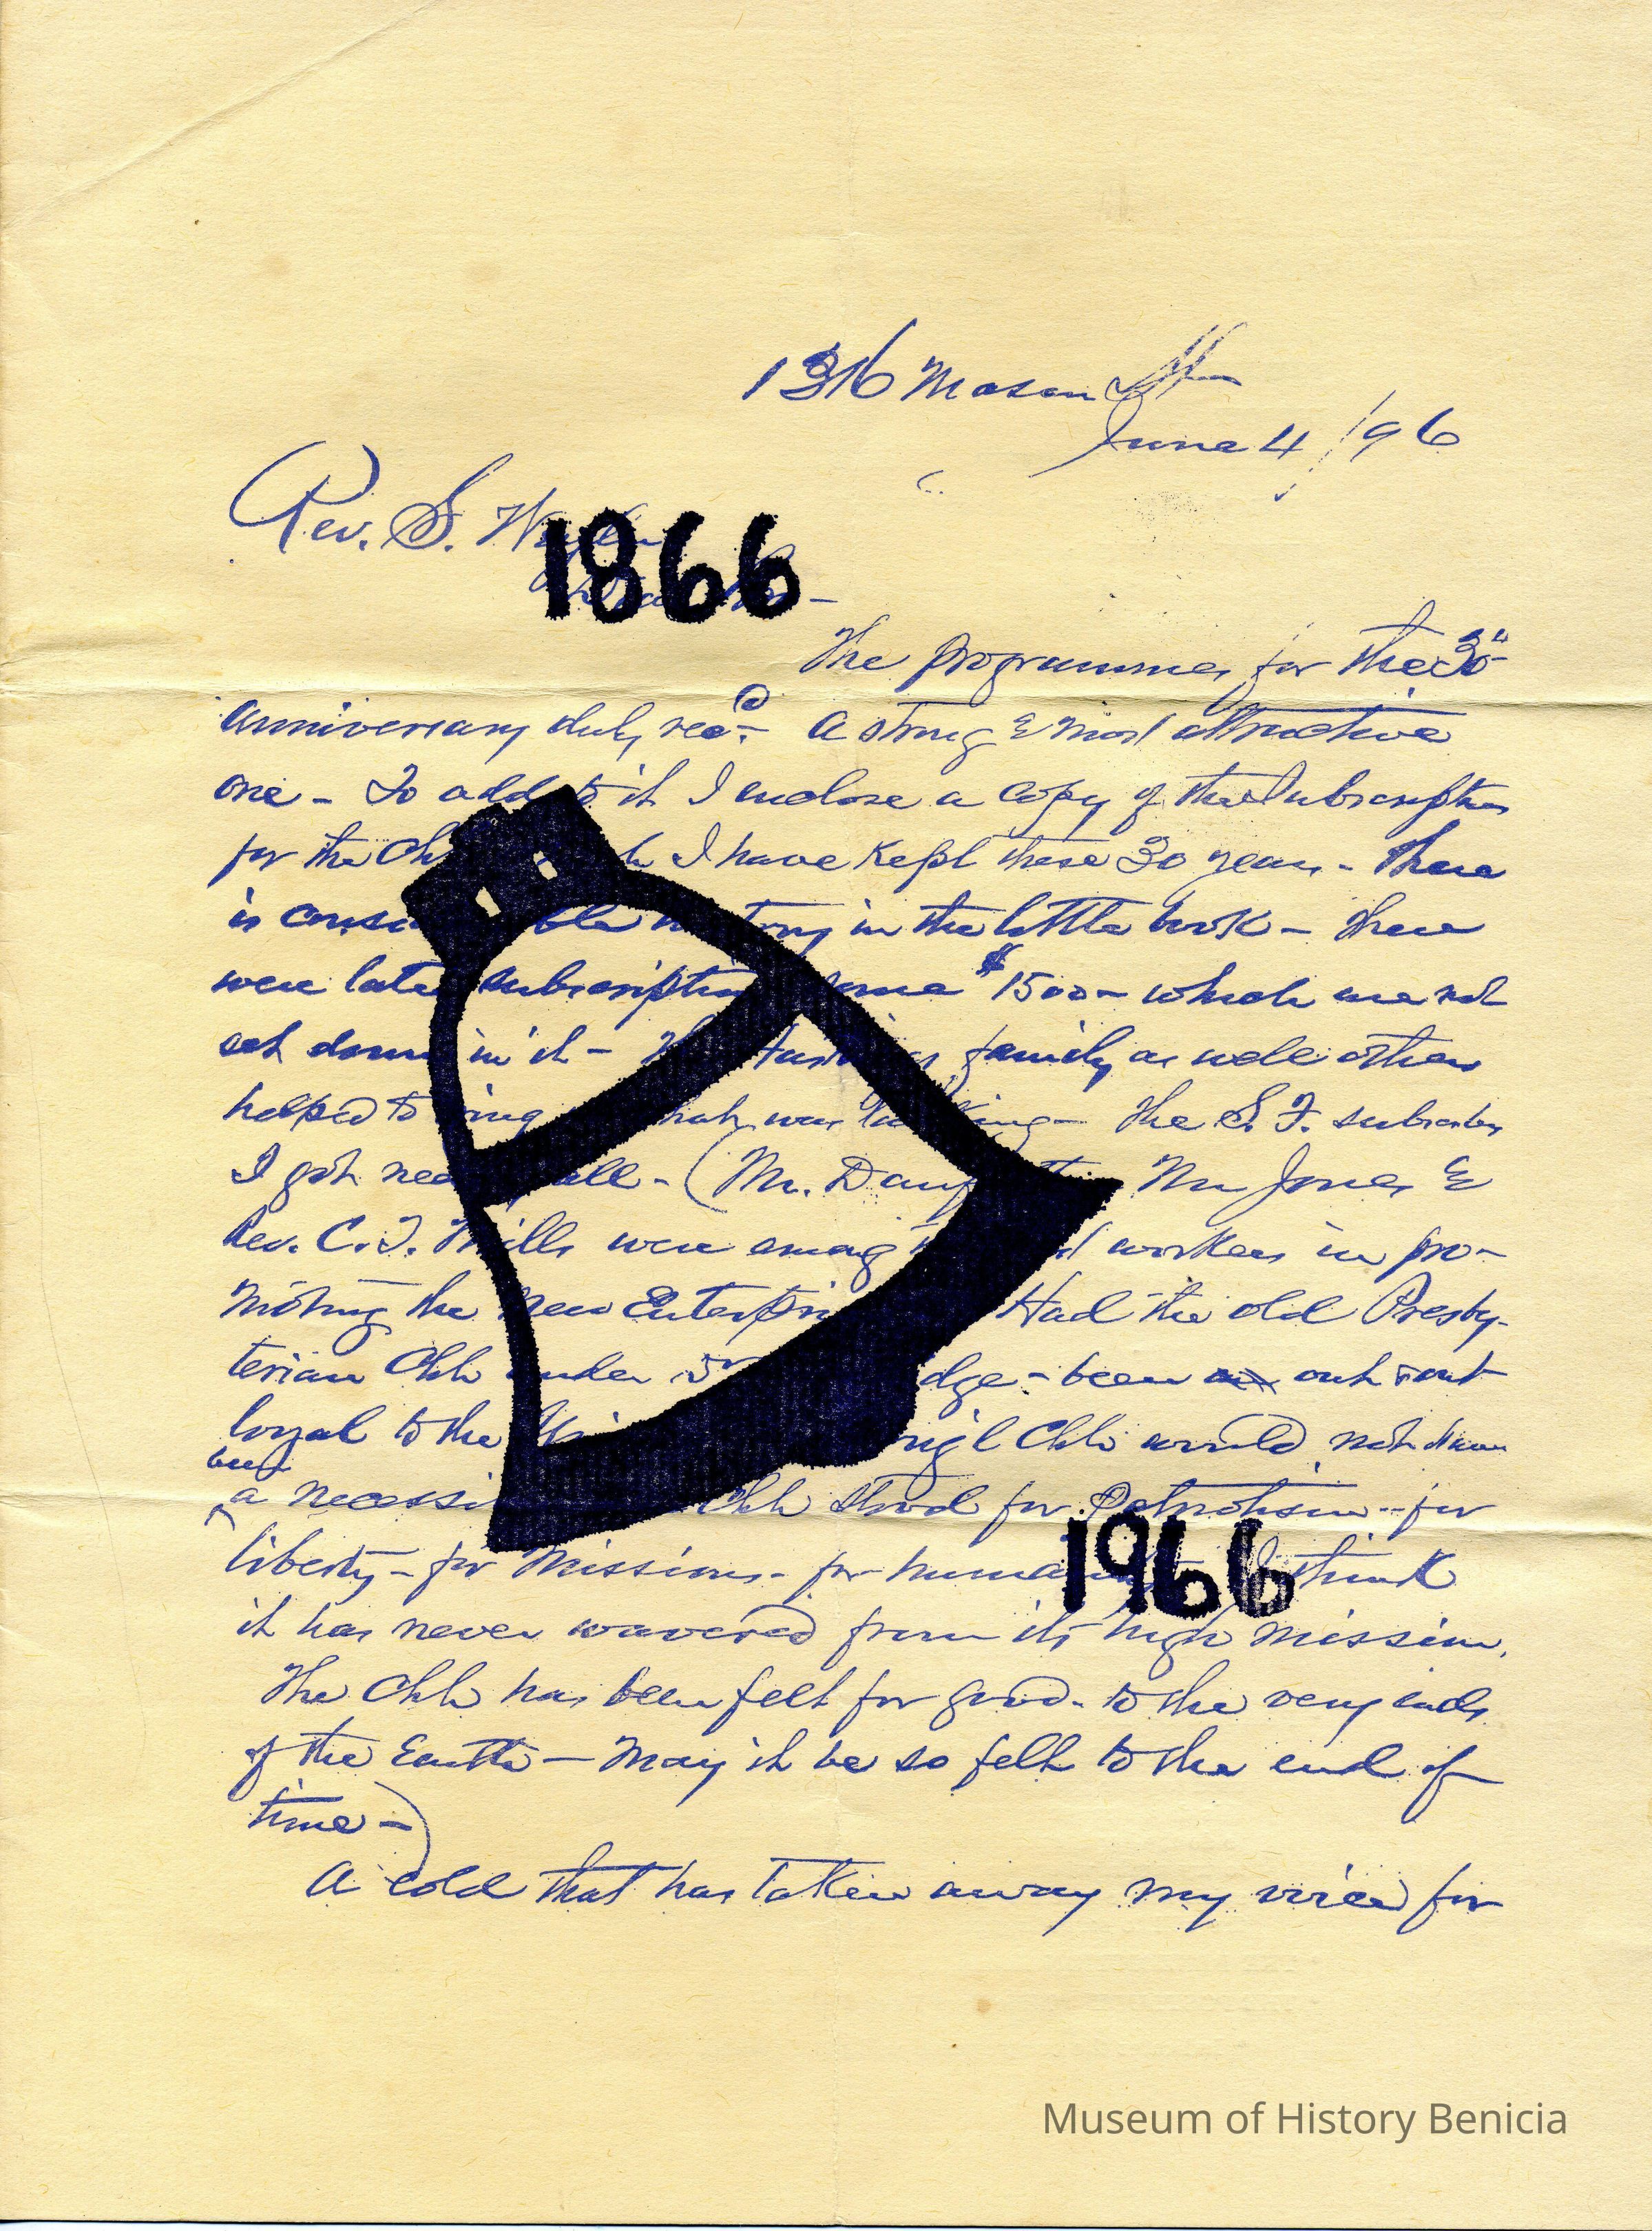 1316 Mason St
June 4 /96
Rev. S.
1866
The programme for the 30"
anniversary duly rec.d A strong & most attractive
one - To add to it I enclose a copy of the subscription
for the Chh I have kept these 30 years - There
is considerable history in the little book - There
were later subscriptions some $1500 - which are not
set down in it - The Hastings family as well others
helped to bring was lacking - The S. F. subscribers
I got nearly all - (Mr. Mr Jones &
Rev. C. T. Mills were among workers in pro-
moting the new Enterprise Had the old Presby-
terian Chh under dge - been out & out
loyal to the Chh would not have
been
a necessity Chh stood for Patriotism - for
liberty - for missions - for humanity I think
1966
it has never wavered from its high mission.
The Chh has been felt for good - to the very ends
of the Earth - May it be so felt to the end of
time -)
A cold that has taken away my voice for
Museum of History Benicia